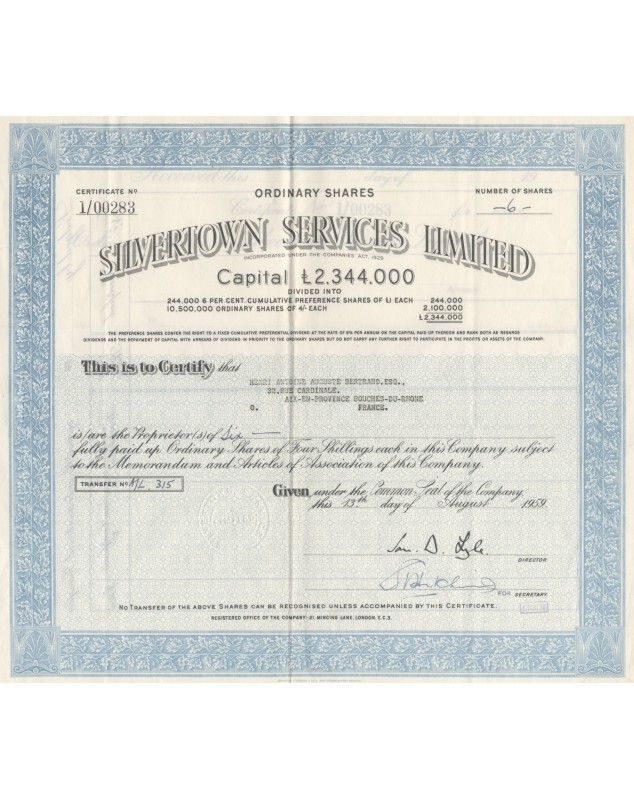 CERTIFICATE Nº
ORDINARY SHARES
NUMBER OF SHARES
1/00283
-6-
SILVERTOWN SERVICES LIMITED
INCORPORATED UNDER THE COMPANIES ACT, 1929
Capital £2.344.000
DIVIDED INTO
244.000 6 PER CENT. CUMULATIVE PREFERENCE SHARES OF £1 EACH 244,000
10,500,000 ORDINARY SHARES OF 4/- EACH 2,100,000
£2,344,000
THE PREFERENCE SHARES CONFER THE RIGHT TO A FIXED CUMULATIVE PREFERENTIAL DIVIDEND AT THE RATE OF 6% PER ANNUM ON THE CAPITAL PAID UP THEREON AND RANK BOTH AS REGARDS
DIVIDENDS AND THE REPAYMENT OF CAPITAL WITH ARREARS OF DIVIDEND IN PRIORITY TO THE ORDINARY SHARES BUT DO NOT CARRY ANY FURTHER RIGHT TO PARTICIPATE IN THE PROFITS OR ASSETS OF THE COMPANY.
This is to Certify that
HENRI ANTOINE AUGUSTE BERTRAND, ESQ.,
32, RUE CARDINALE.
AIX-EN-PROVINCE BOUCHES-DU-RHONE
O. FRANCE.
is/are the Proprietor(s) of Six —
fully paid up Ordinary Shares of Four Shillings each in this Company subject
to the Memorandum and Articles of Association of this Company.
TRANSFER Nº M/L 315
Given under the Common Seal of the Company
this 13th day of August 1959
Ian D. Lyle
DIRECTOR
FOR SECRETARY
NO TRANSFER OF THE ABOVE SHARES CAN BE RECOGNISED UNLESS ACCOMPANIED BY THIS CERTIFICATE.
REGISTERED OFFICE OF THE COMPANY: 21, MINCING LANE, LONDON, E.C.3.